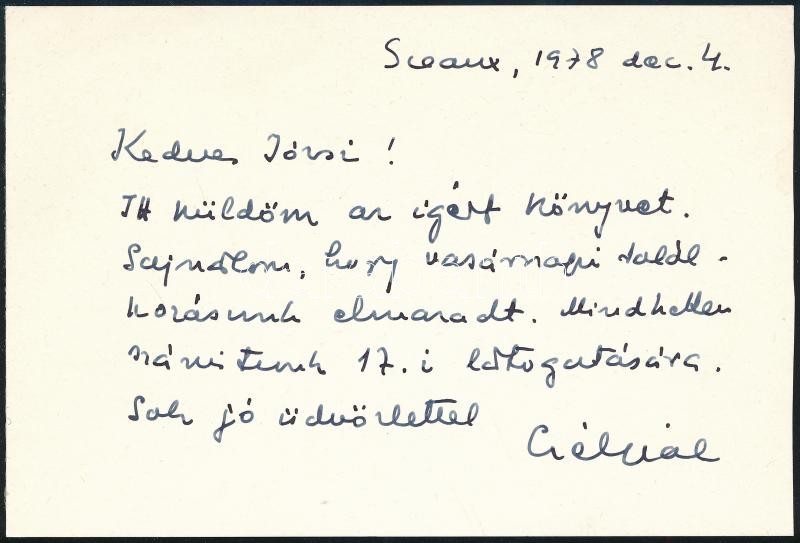 Sceaux, 1978 dec. 4.
Kedves Józsi!
Itt küldöm az igért könyvet.
Sajnálom, hogy vasárnapi talál-
kozásunk elmaradt. Mindketten
számitunk 17.i látogatására.
Sok jó üdvözlettel